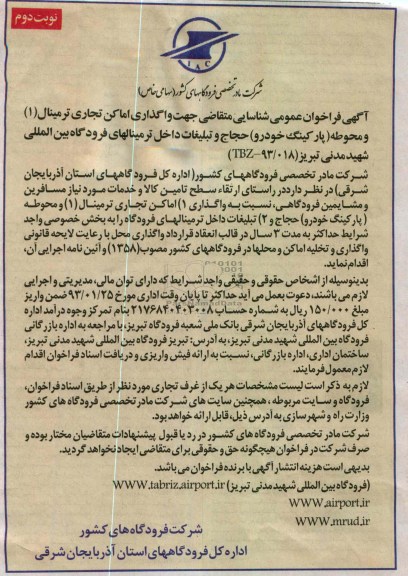 نوبت دوم
IAC
شرکت مادر تخصصی فرودگاههای کشور (سهامی خاص)
آگهی فراخوان عمومی شناسایی متقاضی جهت واگذاری اماکن تجاری ترمینال (۱)
و محوطه (پارکینگ خودرو) حجاج و تبلیغات داخل ترمینالهای فرودگاه بین المللی
شهید مدنی تبریز (TBZ-۹۳/۰۱۸)
شرکت مادر تخصصی فرودگاههای کشور (اداره کل فرودگاههای استان آذربایجان
شرقی) در نظر دارد در راستای ارتقاء سطح تامین کالا و خدمات مورد نیاز مسافرین
و مشایعین فرودگاهی، نسبت به واگذاری ۱) اماکن تجاری ترمینال (۱) و محوطه
(پارکینگ خودرو) حجاج و ۲) تبلیغات داخل ترمینالهای فرودگاه را به بخش خصوصی واجد
شرایط حداکثر به مدت ۳ سال در قالب انعقاد قرارداد واگذاری محل با رعایت لایحه قانونی
واگذاری و تخلیه اماکن و محلها در فرودگاههای کشور مصوب (۱۳۵۸) و آئین نامه اجرایی آن،
اقدام نماید.
بدینوسیله از اشخاص حقوقی و حقیقی واجد شرایط که دارای توان مالی، مدیریتی و اجرایی
لازم می باشند، دعوت بعمل می آید حداکثر تا پایان وقت اداری مورخ ۹۳/۰۱/۲۵ ضمن واریز
مبلغ ۱۵۰/۰۰۰ ریال به شماره حساب ۲۱۷۶۸۴۰۴۰۳۰۰۸ بنام تمرکز وجوه درآمد اداره
کل فرودگاههای آذربایجان شرقی بانک ملی شعبه فرودگاه تبریز، با مراجعه به اداره بازرگانی
فرودگاه بین المللی شهید مدنی تبریز، به آدرس: تبریز فرودگاه بین المللی شهید مدنی تبریز،
ساختمان اداری، اداره بازرگانی، نسبت به ارائه فیش واریزی و دریافت اسناد فراخوان اقدام
لازم معمول فرمایند.
لازم به ذکر است لیست مشخصات هر یک از غرف تجاری مورد نظر از طریق اسناد فراخوان،
فرودگاه و سایت مربوطه، همچنین سایت های شرکت مادر تخصصی فرودگاه های کشور
وزارت راه و شهرسازی به آدرس ذیل، قابل ارائه خواهد بود.
شرکت مادر تخصصی فرودگاه های کشور در رد یا قبول پیشنهادات متقاضیان مختار بوده و
صرف شرکت در فراخوان هیچگونه حق و حقوقی برای متقاضی ایجاد نخواهد گردید.
بدیهی است هزینه انتشار آگهی با برنده فراخوان می باشد.
(فرودگاه بین المللی شهید مدنی تبریز) WWW.tabriz.airport.ir
WWW.airport.ir
WWW.mrud.ir
شرکت فرودگاه های کشور
اداره کل فرودگاههای استان آذربایجان شرقی